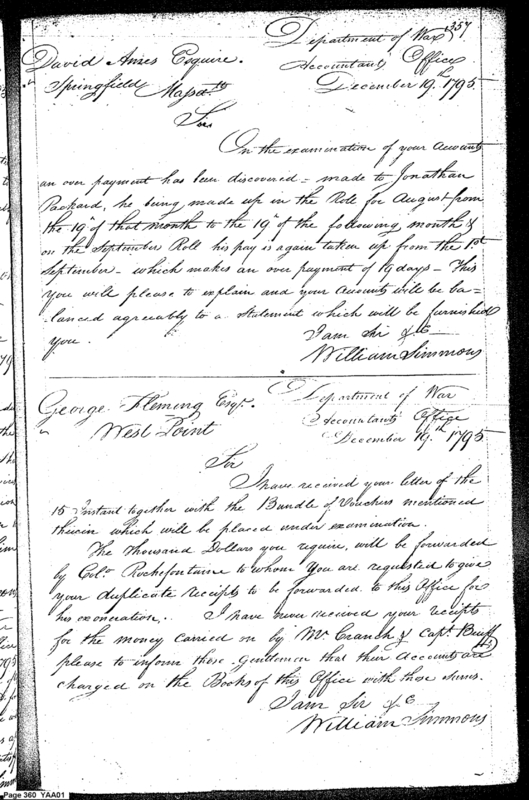 357
David Ames Esquire. Department of War
Springfield Massts Accountants Office
December 19th 1795
Sir
On the examination of your Accounts
an over payment has been discovered = made to Jonathan
Packard, he being made up in the Roll for August from
the 19th of that month to the 19th of the following month &
on the September Roll his pay is again taken up from the 1st
September - which makes an over payment of 19 days - This
you will please to explain and your Accounts will be ba=
lanced agreeably to a Statement which will be furnished
you.
I am Sir &c
William Simmons
George Fleming Esqr. Department of War
West Point Accountants Office
December 19th 1795
Sir
I have received your letter of the
15 Instant together with the Bundle of Vouchers mentioned
therein which will be placed under examination.
The Thousand Dollars you require, will be forwarded
by Colo. Rochefontaine to whom You are requested to give
your duplicate receipts to be forwarded to this Office for
his exoneration.. I have never received your receipts
for the money carried on by Mr Cranch & Capt. Bruff
please to inform those Gentlemen that their Accounts are
charged on the Books of this Office with those Sums.
I am Sir &c
William Simmons
Page 360 YAA01